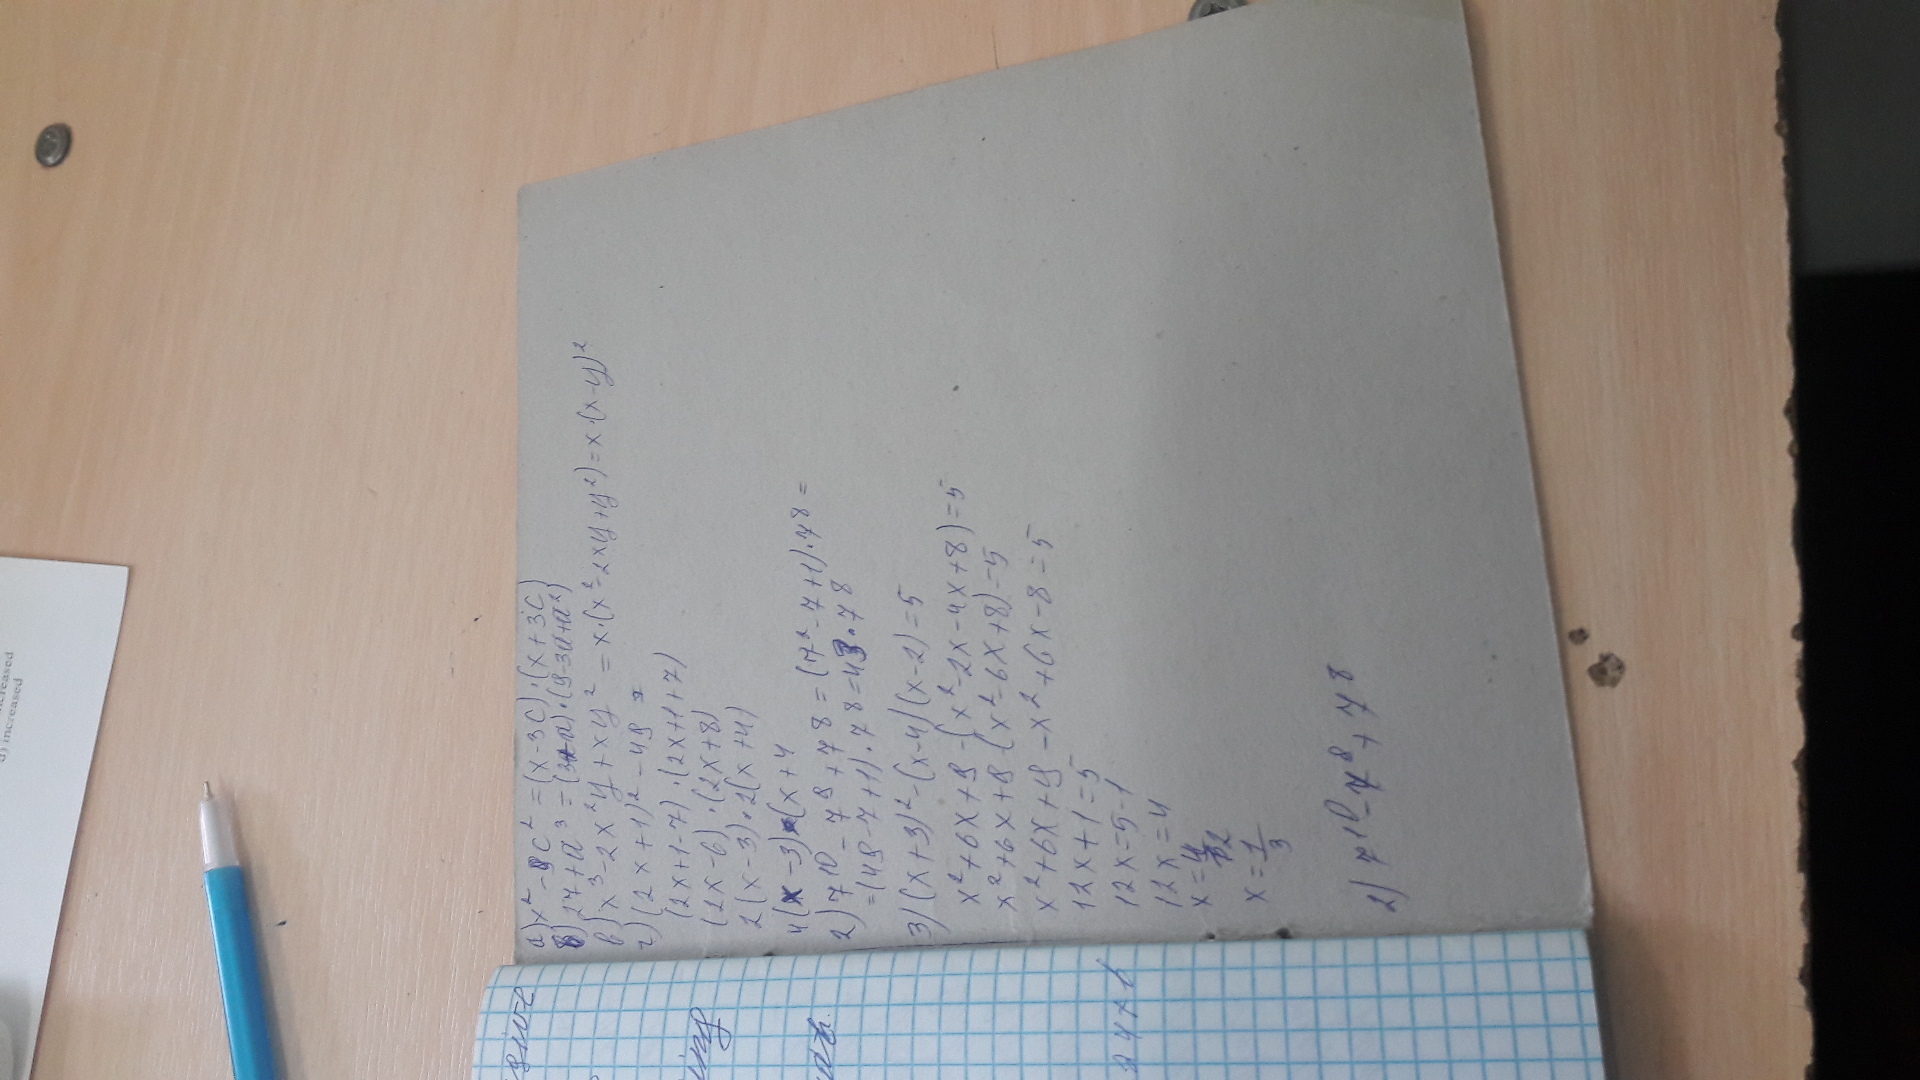 а) x² - 9c² = (x - 3c) · (x + 3c)
б) 27 + a³ = (3+a) · (9 - 3a + a²)
в) x³ - 2x²y + xy² = x · (x² - 2xy + y²) = x · (x - y)²
г) (2x + 1)² - 49 =
(2x + 1 - 7) · (2x + 1 + 7)
(2x - 6) · (2x + 8)
2(x - 3) · 2(x + 4)
4(x - 3) (x + 4
2) 7¹⁰ - 7⁹ + 7⁸ = (7² - 7 + 1) · 7⁸ =
= (49 - 7 + 1) · 7⁸ = 43 · 7⁸
3) (x + 3)² - (x - 4)(x - 2) = 5
x² + 6x + 9 - (x² - 2x - 4x + 8) = 5
x² + 6x + 9 - (x² - 6x + 8) = 5
x² + 6x + 9 - x² + 6x - 8 = 5
12x + 1 = 5
12x = 5 - 1
12x = 4
x = 4/12
x = 1/3
2) 7¹⁰ - 7⁸ + 7⁸
d) increased